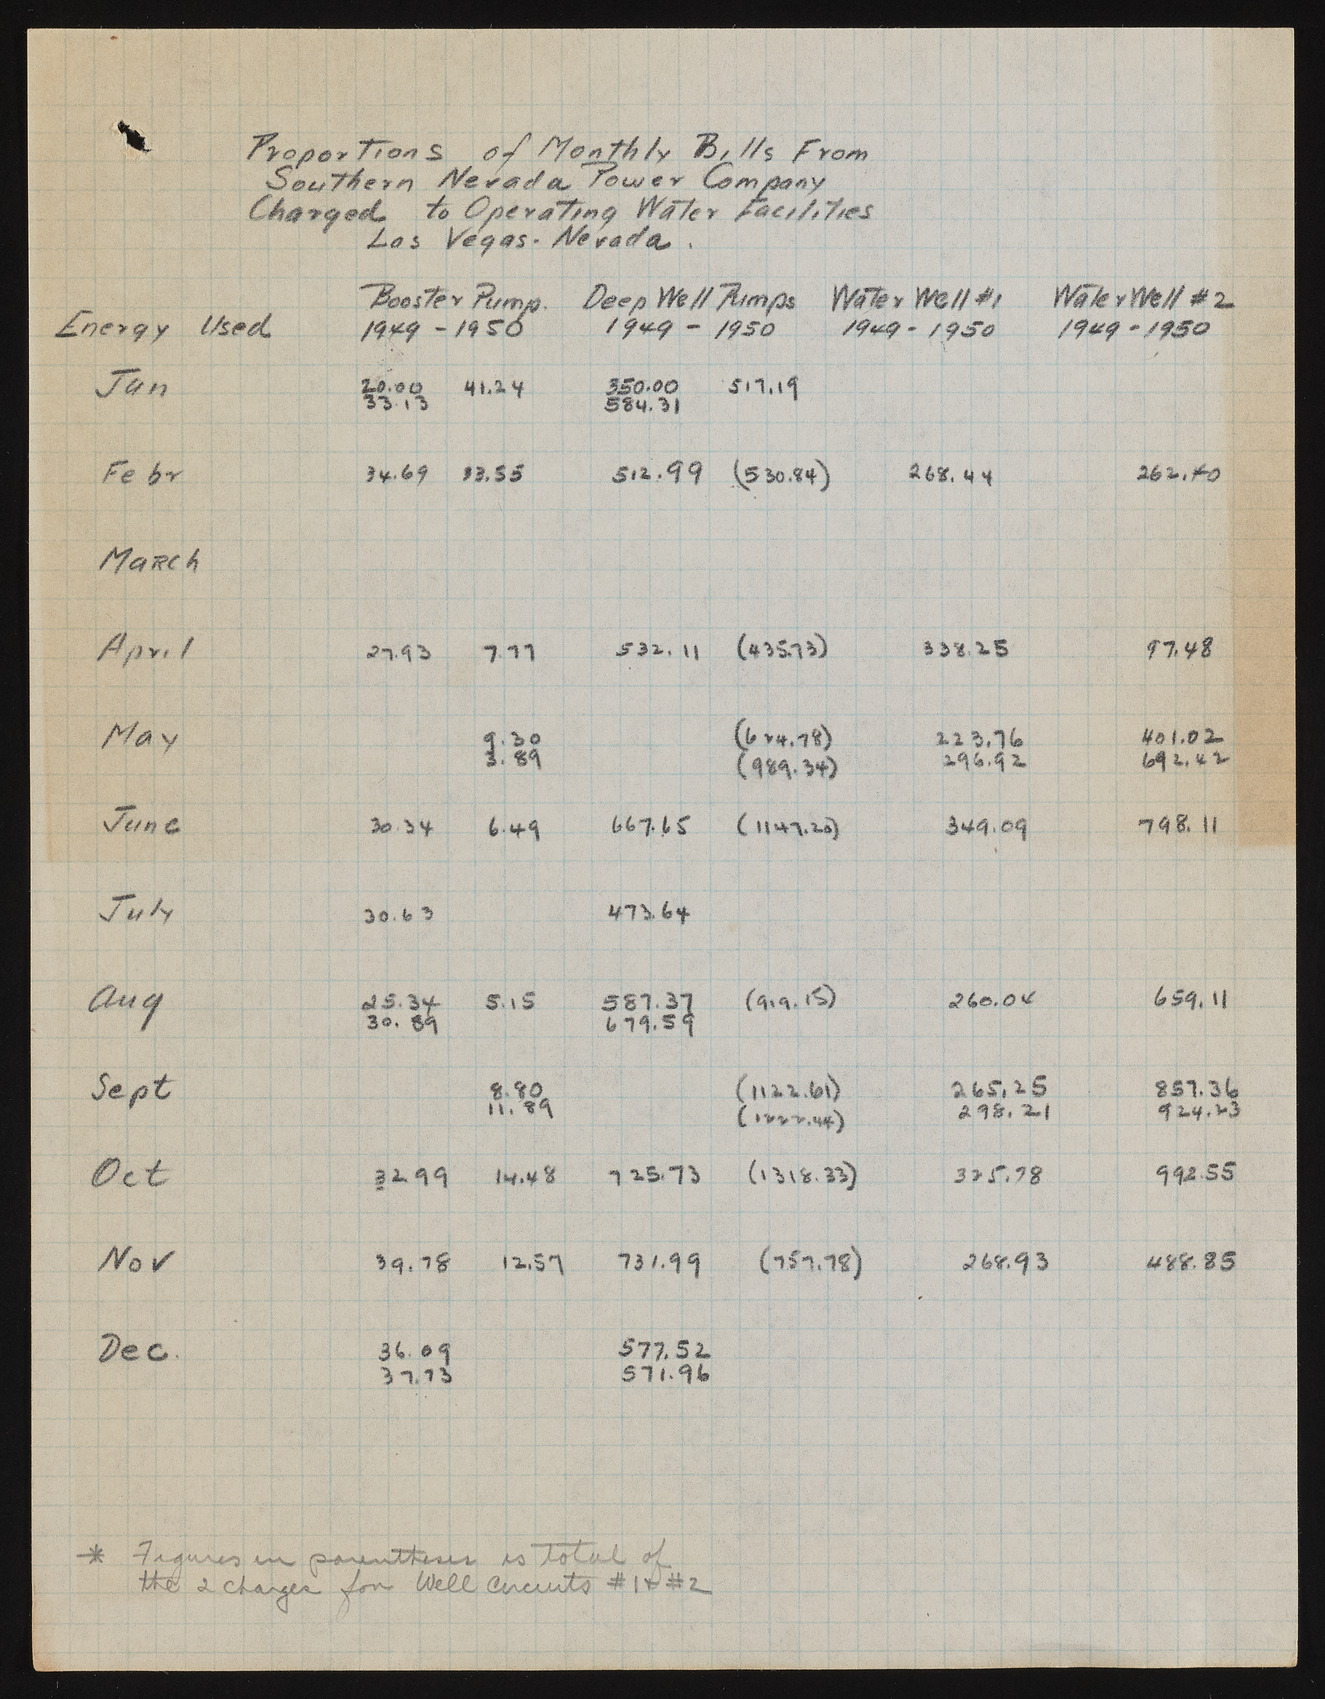 Proportions of Monthly Bills From
Southern Nevada Power Company
Charged to Operating Water Facilities
Las Vegas - Nevada.
Booster Pump. Deep Well Pumps Water Well #1 Water Well #2
Energy Used 1949 - 1950 1949 - 1950 1949 - 1950 1949 - 1950
Jan 20.00 41.24 350.00 517.19
33.13 584.31
Febr 34.69 33.55 512.99 (530.84) 268.44 262.40
March
April 27.93 7.77 532.11 (435.73) 338.25 97.48
May 9.30 (624.78) 223.76 401.02
3.89 (989.34) 296.92 692.42
June 30.34 6.49 667.65 (1147.20) 349.09 798.11
July 30.63 473.64
Aug 25.34 5.15 587.37 (919.15) 260.04 659.11
30.89 679.59
Sept 8.80 (1122.61) 265.25 857.36
11.89 (1222.44) 298.21 924.23
Oct 32.99 14.48 725.73 (1318.33) 325.78 992.55
Nov 39.78 12.57 731.99 (757.78) 268.93 488.85
Dec. 36.09 577.52
37.73 571.96
* Figures in parenthesis is total of
the 2 charges for Well Circuits #1 & #2